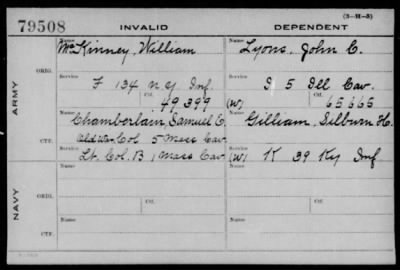 (3—M—3)
79508 INVALID DEPENDENT
ARMY
NAVY
ORIG.
Name McKinney, William
Name Lyons, John C.
Service F 134 N.Y. Inf
Service I 5 Ill Cav.
Ctf. 49399
(W) Ctf. 65665
CTF.
Name Chamberlain, Samuel E.
Name Gilliam, Silburn H.
Service Col 5 Mass Cav
Lt. Col. B 1 Mass Cav
(W) K 39 Ky Inf
ORIG.
Name
Name
Service
Service
Ctf.
Ctf.
CTF.
Name
Name